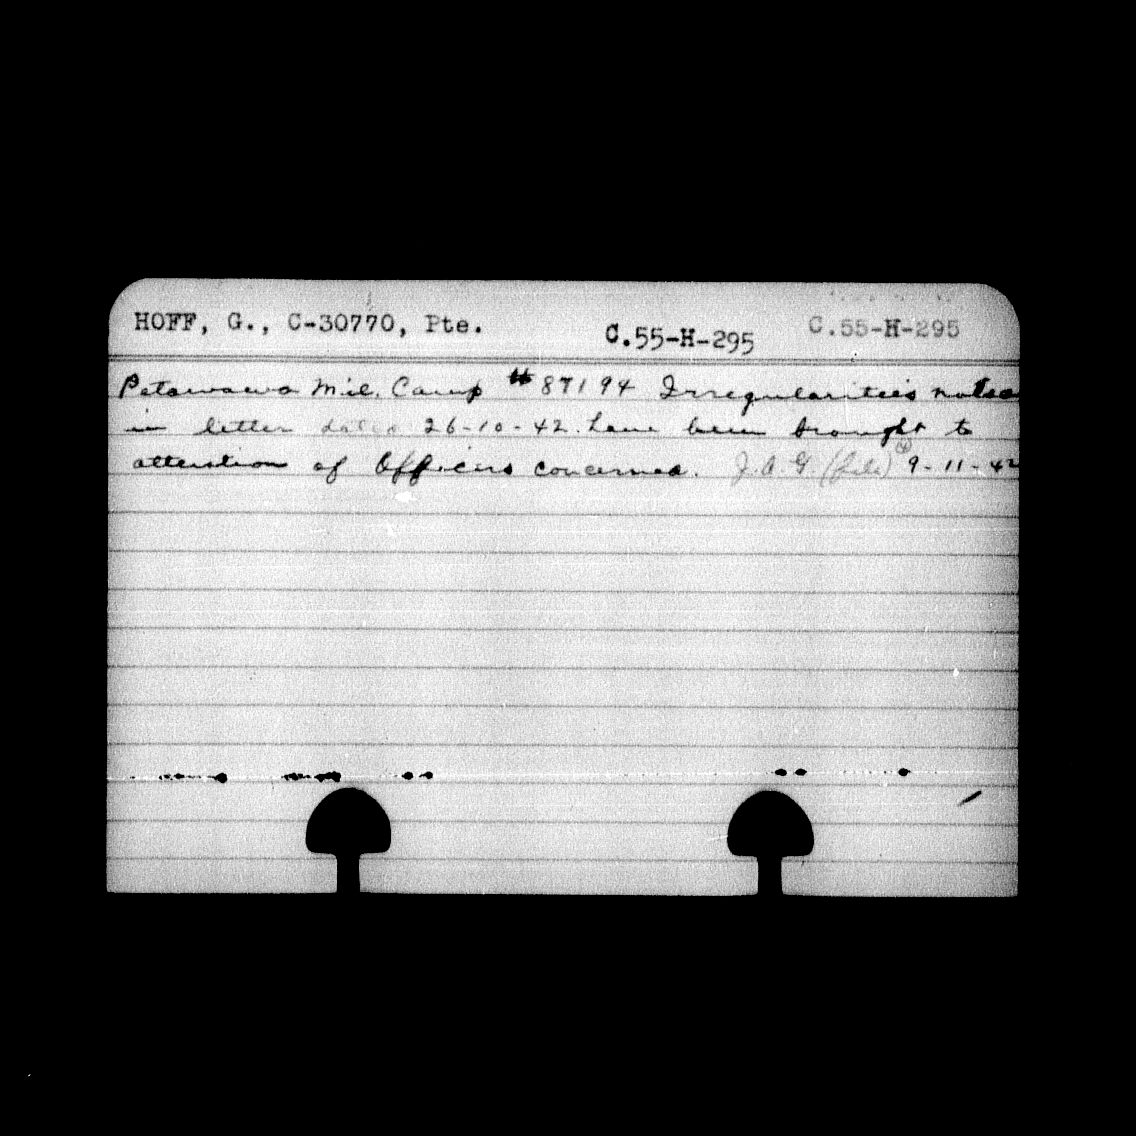 HOFF, G., C-30770, Pte. C.55-H-295 C.55-H-295
Petawawa Mil. Camp # 87194 Irregularities noted
in letter dated 26-10-42 have been brought to
attention of Officers concerned. J.A.G. (file) 9-11-42